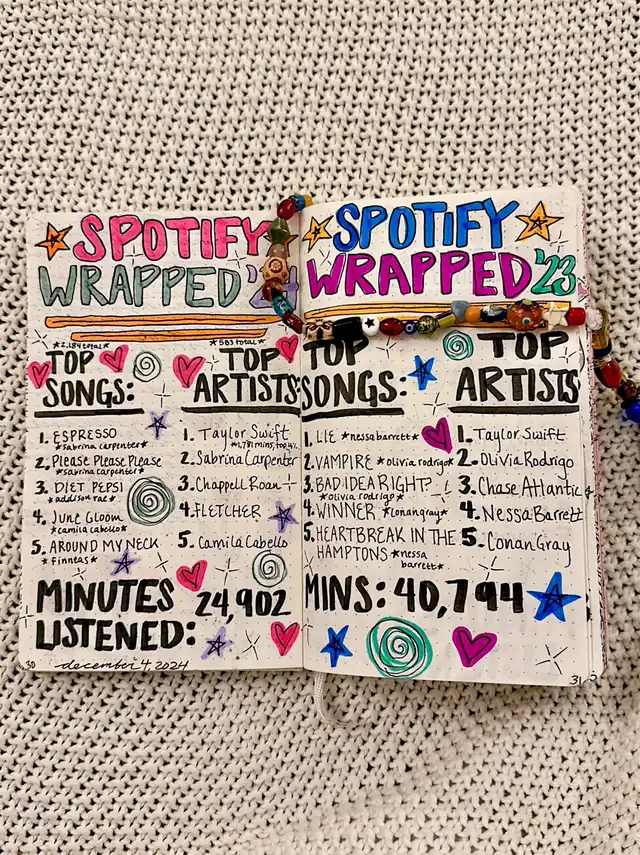 SPOTIFY
WRAPPED
*2,184 total*
TOP
SONGS:
1. ESPRESSO
*sabrina carpenter*
2. Please Please Please
*sabrina carpenter*
3. DIET PEPSI
*addison rae*
4. June Gloom
*camila cabello*
5. AROUND MY NECK
*finneas*
*583 total*
TOP
ARTISTS
1. Taylor Swift
mins, top
2. Sabrina Carpenter
3. Chappell Roan
4. FLETCHER
5. Camila Cabello
MINUTES
LISTENED:
24,902
30
december 4, 2024
SPOTIFY
WRAPPED '23
TOP
SONGS:
1. LIE *nessa barrett*
2. VAMPIRE *olivia rodrigo*
3. BAD IDEA RIGHT?
*olivia rodrigo*
4. WINNER *conan gray*
5. HEARTBREAK IN THE
HAMPTONS *nessa
barrett*
TOP
ARTISTS
1. Taylor Swift
2. Olivia Rodrigo
3. Chase Atlantic
4. Nessa Barrett
5. Conan Gray
MINS: 40,794
31